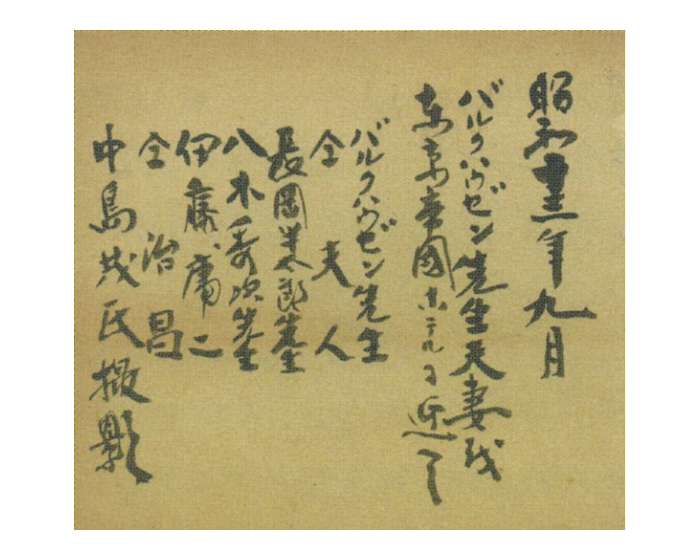 昭和十三年九月
バルクハウゼン先生夫妻を
東京帝國ホテルに迎へて
バルクハウゼン先生
仝夫人
長岡半太郎先生
八木秀次先生
伊藤庸二
仝治昌
中島茂氏撮影